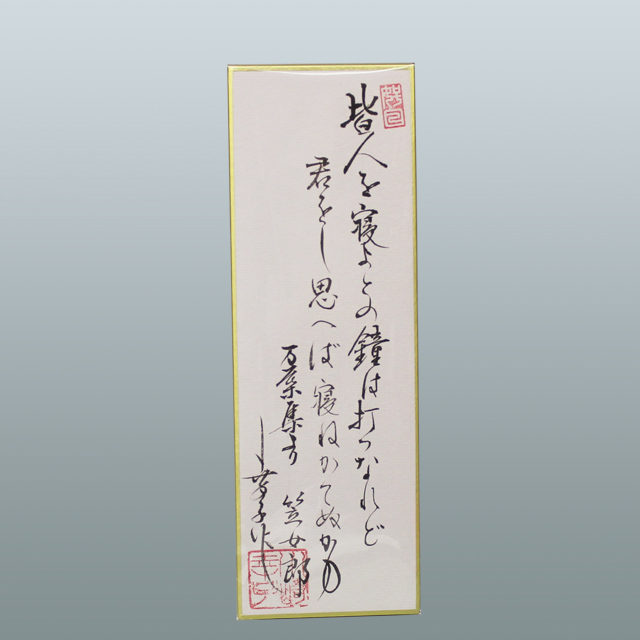 皆人を寝よとの鐘は打つなれど
君をし思へば寝ねかてぬかも
万葉集より 笠女郎